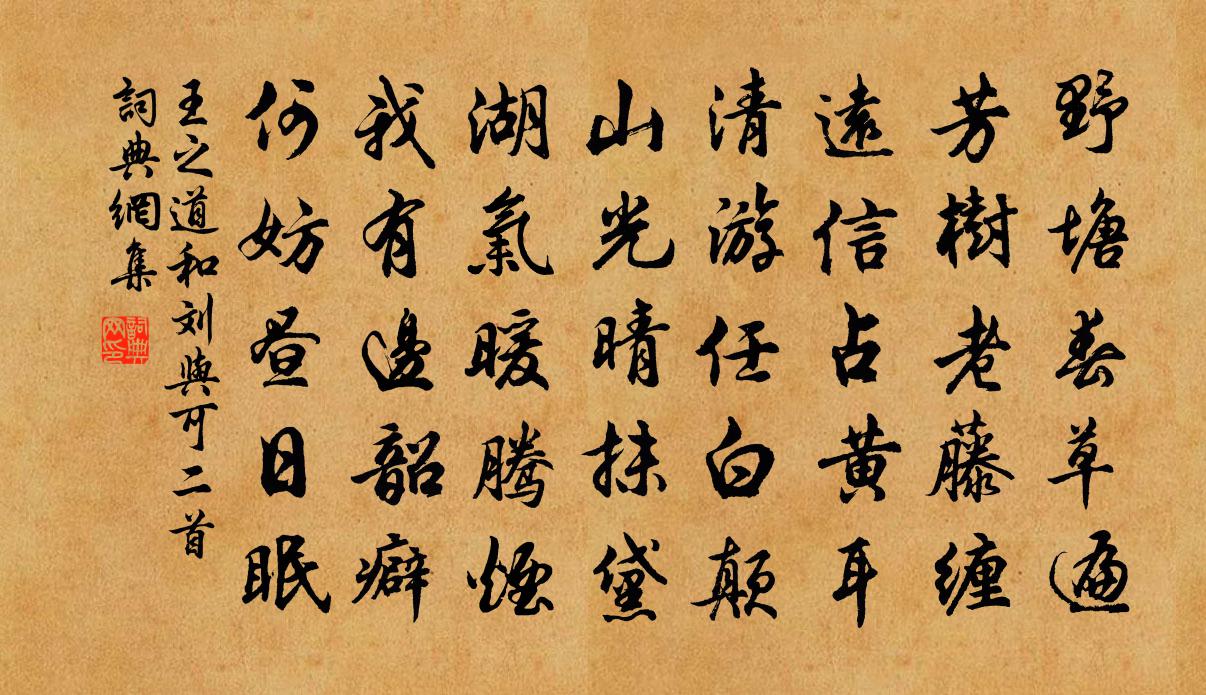 野塘春草遍
芳樹老藤缠
遠信占黄耳
清游任白颠
山光晴抹黛
湖氣暖騰煙
我有邊韶癖
何妨昼日眠
王之道和刘與可二首
詞典網集
詞典网印